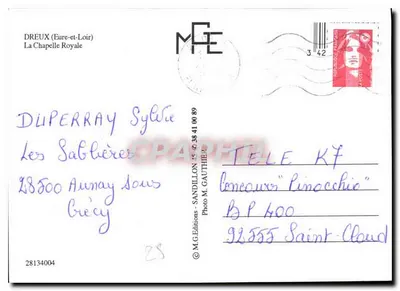 DREUX (Eure-et-Loir)
La Chapelle Royale
MGE
3 42
DUPERRAY Sylvie
Les Sablières
28500 Aunay sous
Crécy
TELE K7
Concours "Pinocchio"
BP 400
92555 Saint-Cloud
© M.G. Editions - SANDILLON 38 41 00 89
Photo M. GAUTHIER
28134004
28
CPAPHIL